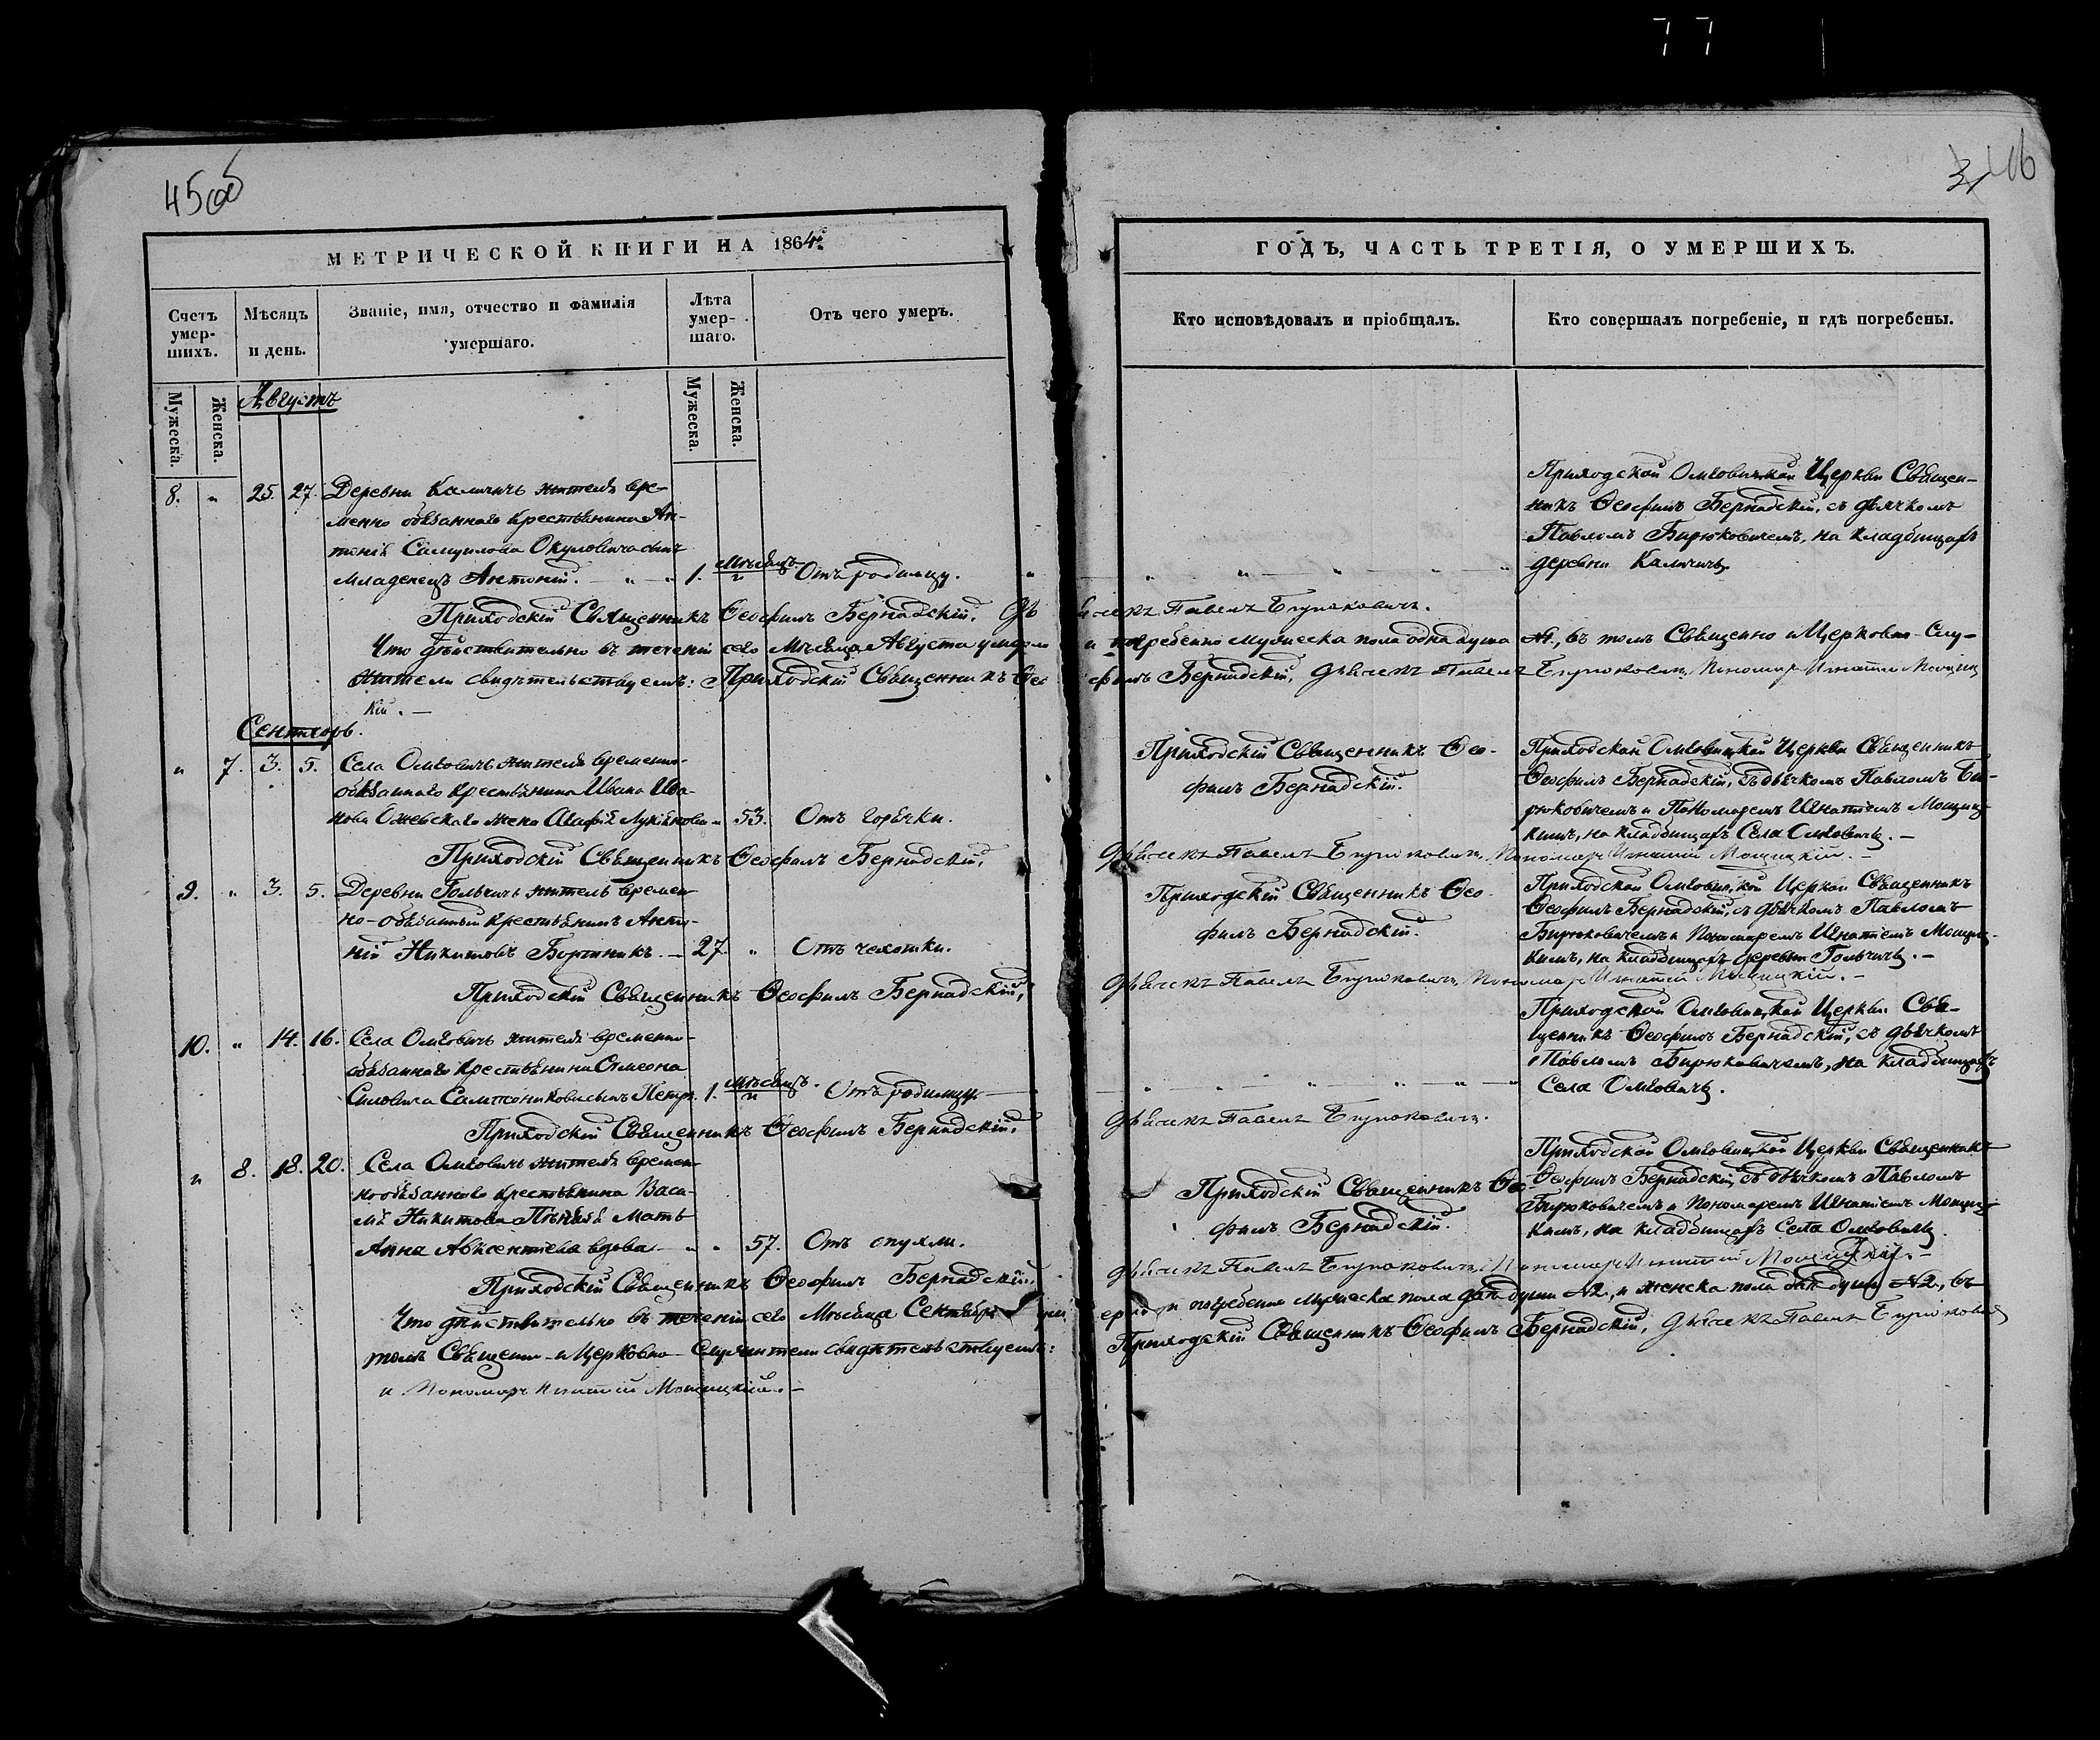 45об
46
МЕТРИЧЕСКОЙ КНИГИ НА 1864й
ГОДЪ, ЧАСТЬ ТРЕТІЯ, О УМЕРШИХЪ.
Счетъ умер-шихъ.
Мѣсяцъ и день.
Званіе, имя, отчество и фамилія умершаго.
Лѣта умер-шаго.
Отъ чего умеръ.
Кто исповѣдовалъ и пріобщалъ.
Кто совершалъ погребеніе, и гдѣ погребены.
Мужеска.
Женска.
Мужеска.
Женска.
Августъ
8. " 25. 27. Деревни Каличичъ жителя вре-
менно обязаннаго крестьянина Ан-
тонія Самуилова Окуловича сынъ
младенецъ Антоній. — " — " 1. мѣсяцъ " Отъ родимцу.
Приходской Омговицкой Церкви Священ-
никъ Ѳеофилъ Бернадскій, съ дьячкомъ
Павломъ Бирюковичемъ, на кладбищахъ
деревни Каличичъ
Приходскій Священникъ Ѳеофилъ Бернадскій. Дьячекъ Павелъ Бирюковичъ.
Что дѣйствительно въ теченіи сего Мѣсяца Августа умерло и погребено мужеска пола одна душа №1, въ томъ Священно и Церковно-Слу-
жители свидѣтельствуемъ: Приходскій Священникъ Ѳеофилъ Бернадскій, Дьячекъ Павелъ Бирюковичъ, Пономарь Игнатій Мощиц
кій. —
Сентябрь.
" 7. 3. 5. Села Омговичъ жителя временно-
обязаннаго крестьянина Ивана Ива-
нова жена Агафія Лукіянова " 53. Отъ горячки.
Приходскій Священникъ Ѳео-
филъ Бернадскій.
Приходской Омговицкой Церкви Священникъ
Ѳеофилъ Бернадскій, съ дьячкомъ Павломъ Би-
рюковичемъ и Пономаремъ Игнатіемъ Мощиц-
кимъ, на кладбищахъ Села Омговичъ. —
Приходскій Священникъ Ѳеофилъ Бернадскій, Дьячекъ Павелъ Бирюковичъ, Пономарь Игнатій Мощицкій. —
9. " 3. 5. Деревни Гольчичъ житель времен-
но-обязанный крестьянинъ Анто-
ній Никитовъ Бортникъ. — 27. " Отъ чехотки.
Приходскій Священникъ Ѳео-
филъ Бернадскій.
Приходской Омговицкой Церкви Священникъ
Ѳеофилъ Бернадскій, съ дьячкомъ Павломъ
Бирюковичемъ и Пономаремъ Игнатіемъ Мощиц-
кимъ, на кладбищахъ деревни Гольчичъ. —
Приходскій Священникъ Ѳеофилъ Бернадскій, Дьячекъ Павелъ Бирюковичъ, Пономарь Игнатій Мощицкій. —
10. " 14. 16. Села Омговичъ жителя временно-
обязаннаго крестьянина Симеона
сынъ Петръ. 1. мѣсяцъ. " Отъ родимцу. —
Приходской Омговицкой Церкви Свя-
щенникъ Ѳеофилъ Бернадскій, съ дьячкомъ
Павломъ Бирюковичемъ, на кладбищахъ
Села Омговичъ.
Приходскій Священникъ Ѳеофилъ Бернадскій, Дьячекъ Павелъ Бирюковичъ.
" 8. 18. 20. Села Омговичъ жителя времен-
нообязаннаго крестьянина Васи-
лія Никитова мать
Анна Авксентіева вдова. " " 57. Отъ опухли.
Приходскій Священникъ Ѳео-
филъ Бернадскій.
Приходской Омговицкой Церкви Священникъ
Ѳеофилъ Бернадскій, съ дьячкомъ Павломъ
Бирюковичемъ и Пономаремъ Игнатіемъ Мощиц-
кимъ, на кладбищахъ Села Омговичъ.
Приходскій Священникъ Ѳеофилъ Бернадскій, Дьячекъ Павелъ Бирюковичъ, Пономарь Игнатій Мощицкій. —
Что дѣйствительно въ теченіи сего Мѣсяца Сентября и погребено мужеска пола двѣ души №2, и женска пола двѣ души №2, въ
томъ Священно-и Церковно-Служители свидѣтельствуемъ: Приходскій Священникъ Ѳеофилъ Бернадскій, Дьячекъ Павелъ Бирюковичъ
и Пономарь Игнатій Мощицкій. —